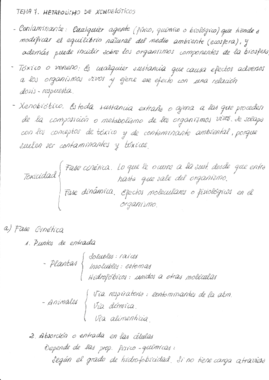 TEMA 1. METABOLISMO DE XENOBIÓTICOS
- Contaminante. Cualquier agente (físico, químico o biológico) que tiende a
modificar el equilibrio natural del medio ambiente (ecosfera), y
además puede incidir sobre los organismos componentes de la biosfera.
- Tóxico o veneno. Es cualquier sustancia que causa efectos adversos
a los organismos vivos y ejerce un efecto con una relación
dosis-respuesta.
- Xenobiótico. Es toda sustancia extraña o ajena a las que proceden
de la composición o metabolismo de los organismos vivos. Se solapa
con los conceptos de tóxico y de contaminante ambiental, porque
suelen ser contaminantes y tóxicos.
Toxicidad
Fase cinética. Lo que le ocurre a la sust desde que entra
hasta que sale del organismo.
Fase dinámica. Efectos moleculares o fisiológicos en el
organismo.
a) Fase Cinética
1. Puntos de entrada
- Plantas
Solubles: raíces
Insolubles: estomas
Hidrofóbicos: unidos a otras moléculas
- Animales
Vía respiratoria: contaminantes de la atm.
Vía dérmica
Vía alimenticia
2. Absorción o entrada en las células
Depende de las prop. físico-químicas:
Según el grado de hidrofobicidad. Si no tiene carga atraviesa